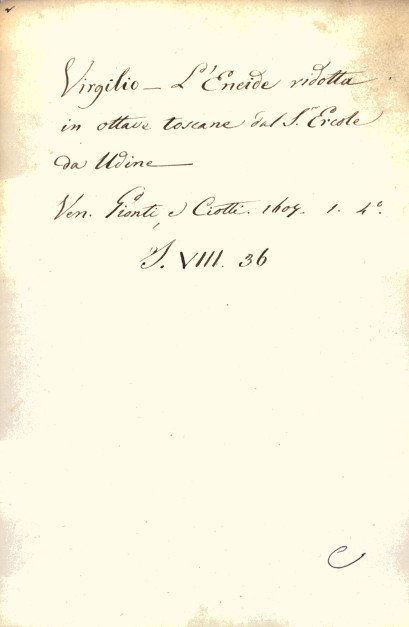 Virgilio — L'Eneide ridotta
in ottave toscane dal S.r Ercole
da Udine —
Ven. Gionti, e Ciotti. 1607. 1. 4°.
S. VIII. 36
C